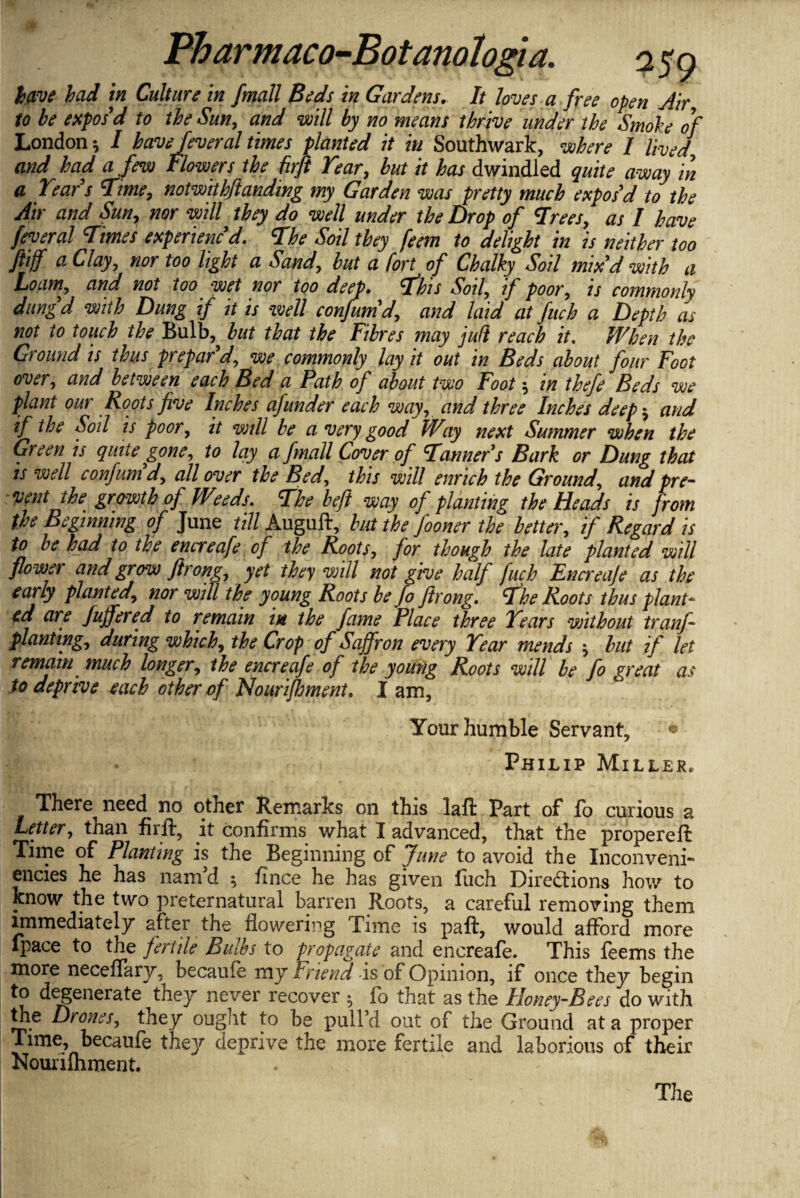 Pharmaco-Botanologia. 259
have had in Culture in ſmall Beds in Gardens. It loves a free open Air,
to be expos'd to the Sun, and will by no means thrive under the Smoke of
London; I have ſeveral times planted it in Southwark, where I lived,
and had a few Flowers the firſt Year, but it has dwindled quite away in
a Year's Time, notwithſtanding my Garden was pretty much expos'd to the
Air and Sun, nor will they do well under the Drop of Trees, as I have
ſeveral Times experienc'd. The Soil they ſeem to delight in is neither too
ſtiff a Clay, nor too light a Sand, but a ſort of Chalky Soil mix'd with a
Loam, and not too wet nor too deep. This Soil, if poor, is commonly
dung'd with Dung if it is well conſum'd, and laid at ſuch a Depth as
not to touch the Bulb, but that the Fibres may juſt reach it. When the
Ground is thus prepar'd, we commonly lay it out in Beds about four Foot
over, and between each Bed a Path of about two Foot; in theſe Beds we
plant our Roots five Inches aſunder each way, and three Inches deep; and
if the Soil is poor, it will be a very good Way next Summer when the
Green is quite gone, to lay a ſmall Cover of Tanner's Bark or Dung that
is well conſum'd, all over the Bed, this will enrich the Ground, and pre-
vent the growth of Weeds. The beſt way of planting the Heads is from
the Beginning of June till Auguſt, but the ſooner the better, if Regard is
to be had to the encreaſe of the Roots, for though the late planted will
flower and grow ſtrong, yet they will not give half ſuch Encreaſe as the
early planted, nor will the young Roots be ſo ſtrong. The Roots thus plant-
ed are ſuffered to remain in the ſame Place three Years without tranſ-
planting, during which, the Crop of Saffron every Year mends; but if let
remain much longer, the encreaſe of the young Roots will be ſo great as
to deprive each other of Nouriſhment. I am,
Your humble Servant,
Philip Miller.
There need no other Remarks on this laſt Part of ſo curious a
Letter, than firſt, it confirms what I advanced, that the propereſt
Time of Planting is the Beginning of June to avoid the Inconveni-
encies he has nam'd; ſince he has given ſuch Directions how to
know the two preternatural barren Roots, a careful removing them
immediately after the flowering Time is paſt, would afford more
ſpace to the fertile Bulbs to propagate and encreaſe. This ſeems the
more neceſſary, becauſe my Friend is of Opinion, if once they begin
to degenerate they never recover; ſo that as the Honey-Bees do with
the Drones, they ought to be pull'd out of the Ground at a proper
Time, becauſe they deprive the more fertile and laborious of their
Nouriſhment.
The